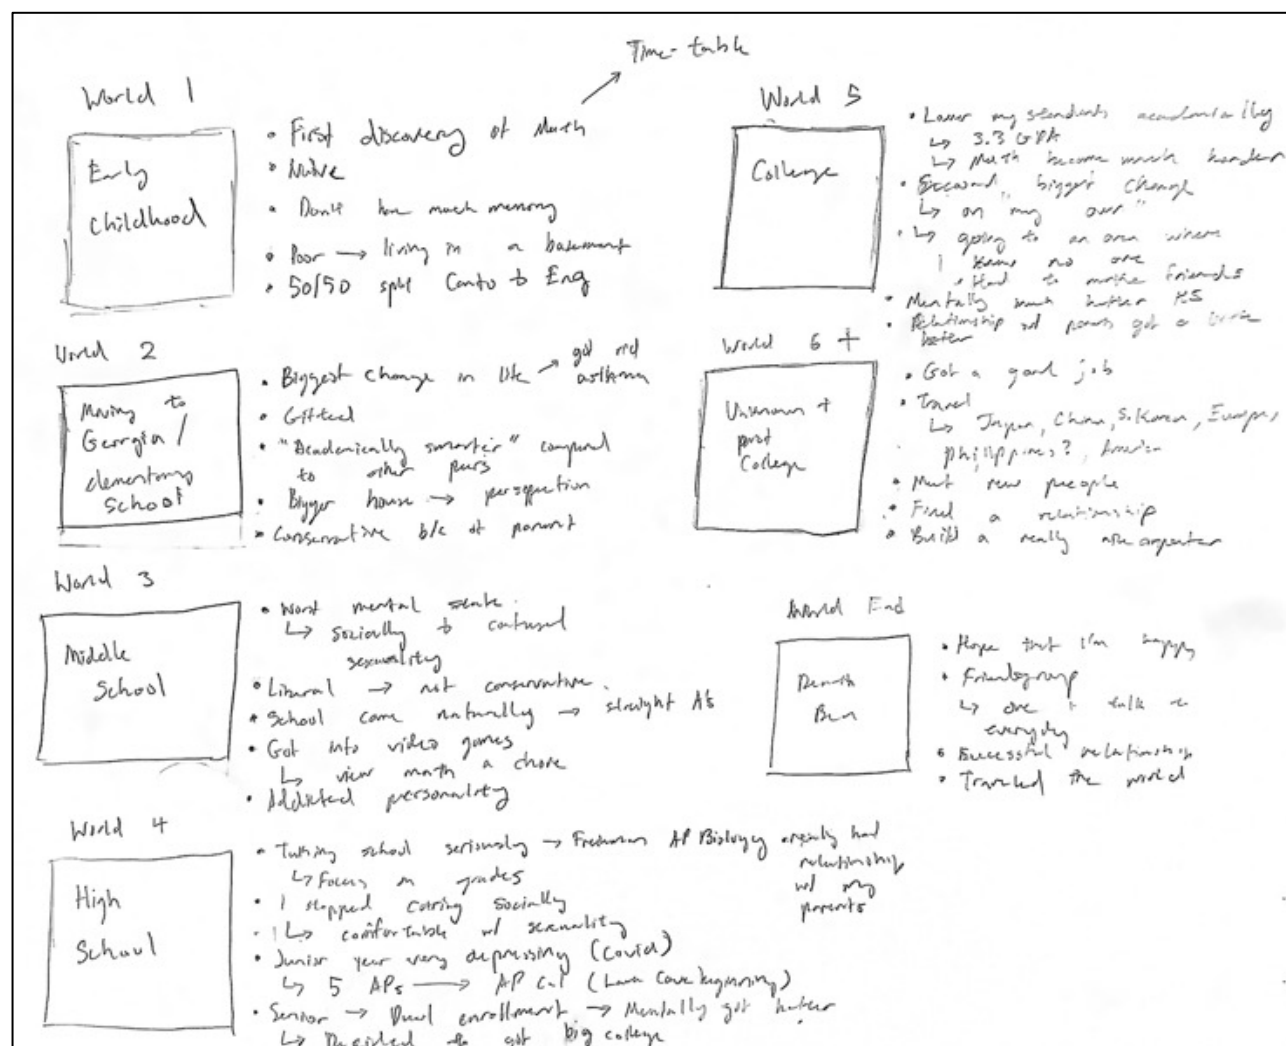 Time-table
World 1
Early
Childhood
• First discovery of Math
• Naive
• Don't have much memory
• Poor → living in a basement
• 50/50 split Canto to Eng
World 2
Moving to
Georgia /
elementary
School
• Biggest change in life → got rid
asthma
• Gifted
• "Academically smarter" compared
to other peers
• Bigger house →
• Conservative b/c of parent
World 3
Middle
School
• Worst mental state
↳ socially & confused
sexuality
• Liberal → not conservative
• School came naturally → straight A's
• Got into video games
↳ view math a chore
• Addicted personality
World 4
High
School
• Taking school seriously → Freshman AP Biology
relationship
w/ my
parents
↳ Focus on grades
• I stopped caring socially
↳ comfortable w/ sexuality
• Junior year very depressing (Covid)
↳ 5 APs → AP Cal (Lava Cave beginning)
• Senior → Dual enrollment → Mentally got better
↳ Decided to got big college
World 5
College
• Lower my standards academically
↳ 3.3 GPA
↳ Math become much harder
• Second "bigger" change
↳ on "my own"
↳ going to an area where
I knew no one
• Had to make friends
• Mentally much better HS
• Relationship w/ parents got a
better
World 6+
Unknown +
post
College
• Got a good job
• Travel
↳ Japan, China, S. Korea, Europe,
Philippines?, America
• Meet new people
• Find a relationship
• Build a really nice computer
World End
Ben
• Hope that I'm happy
• Friendgroup
↳ one I talk to
everyday
• Successful relationship
• Traveled the world